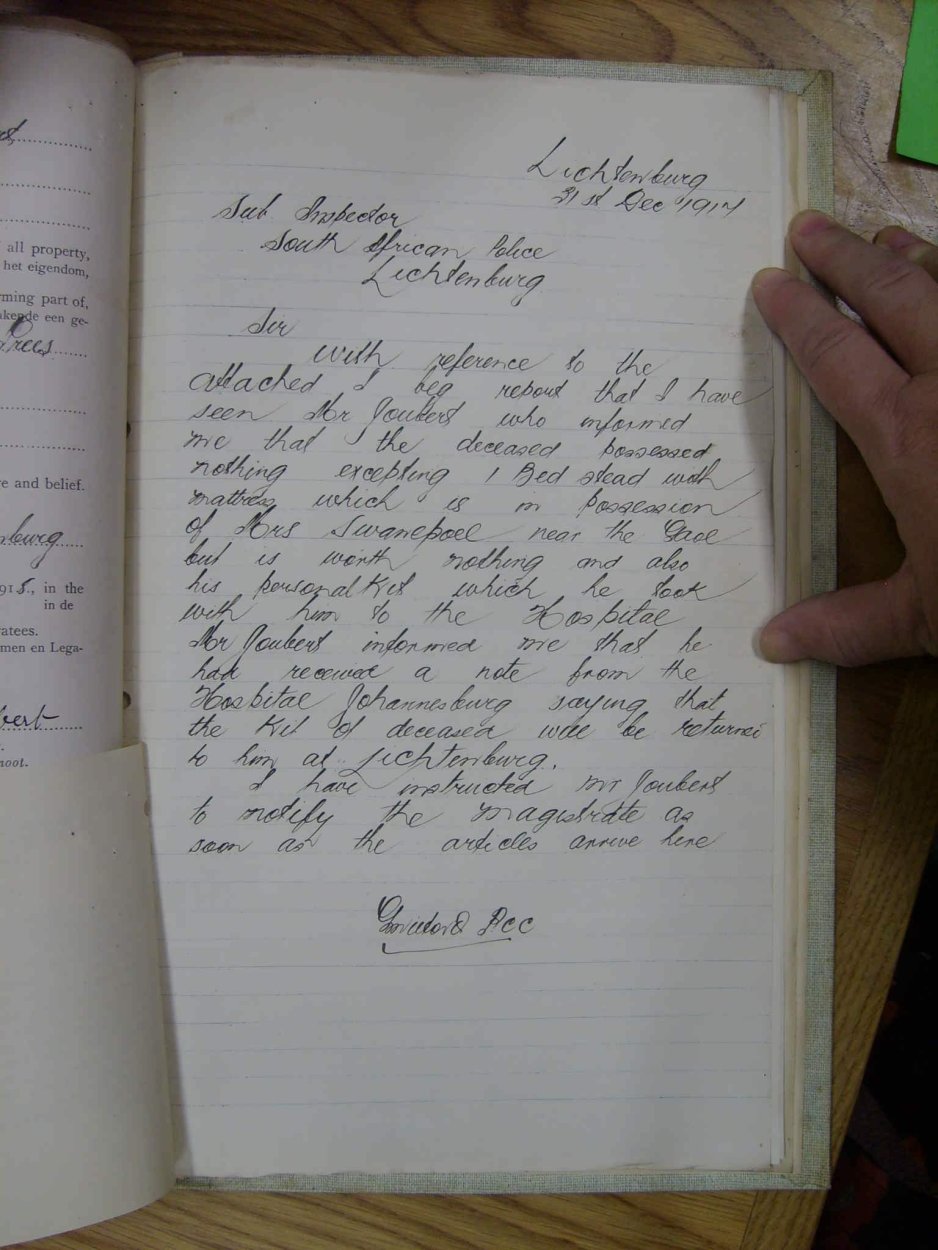 st
all property,
het eigendom,
ming part of,
akende een ge-
Drees
e and belief.
nburg
915., in the
in de
atees.
men en Lega-
bert
noot.
Lichtenburg
31st Dec 1914
Sub Inspector
South African Police
Lichtenburg
Sir
With reference to the
attached I beg report that I have
seen Mr Joubert who informed
me that the deceased possessed
nothing excepting 1 Bed stead with
mattress which is in possession
of Mrs Swanepoel near the Gaol
but is worth nothing and also
his personal Kit which he took
with him to the Hospital
Mr Joubert informed me that he
had received a note from the
Hospital Johannesburg saying that
the Kit of deceased will be returned
to him at Lichtenburg.
I have instructed Mr Joubert
to notify the Magistrate as
soon as the articles arrive here